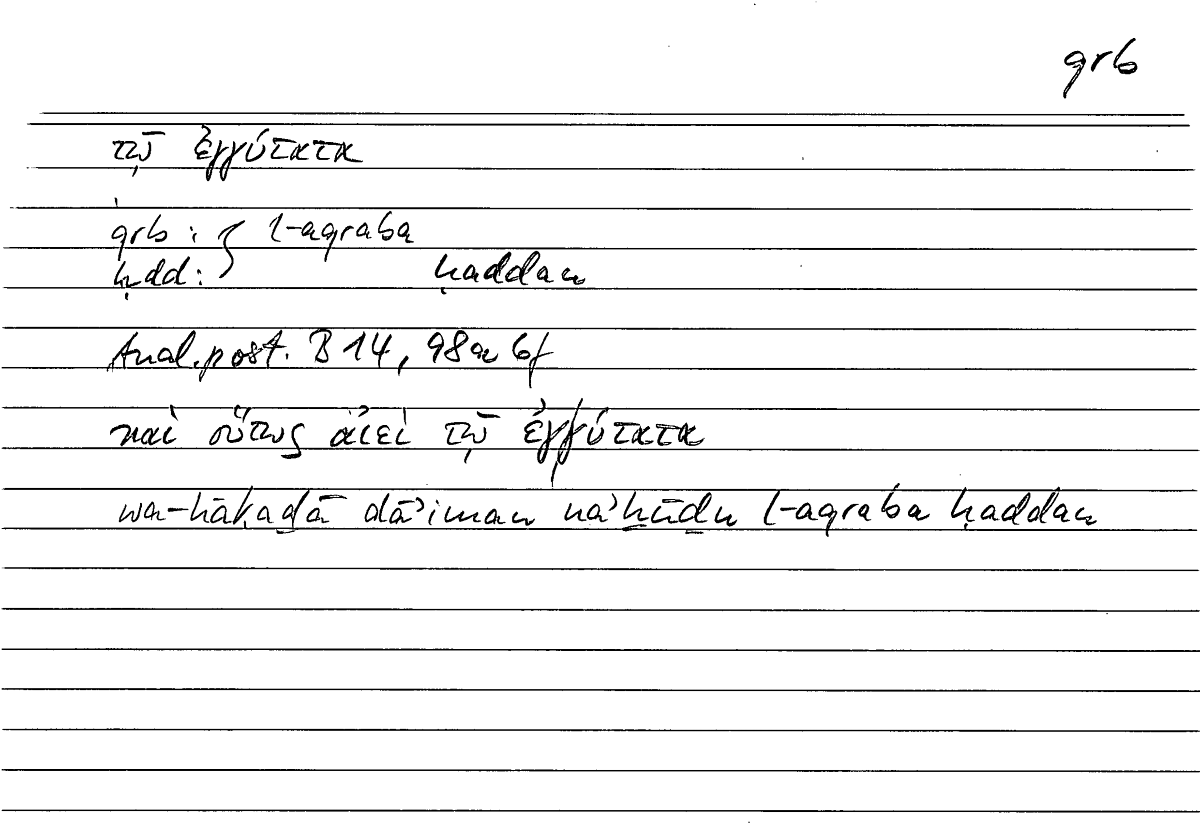 qrb
τῷ ἐγγύτατα
qrb : { l-aqraba
ḥdd : ḥaddan
Anal. post. B 14, 98a 6f
καὶ οὕτως ἀιεὶ τῷ ἐγγύτατα
wa-hākaḏā dā'iman na'ḫūḏu l-aqraba ḥaddan